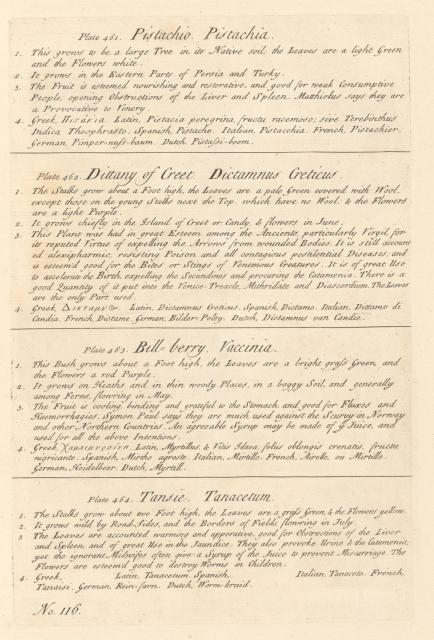 Plate 461. Pistachio. Pistachia.
1. This grows to be a large Tree in its Native soil, the Leaves are a light Green
and the Flowers white.
2. It grows in the Eastern Parts of Persia and Turky.
3. The Fruit is esteemed nourishing and restorative, and good for weak Consumptive
People, opening Obstructions of the Liver and Spleen. Matthiolus says they are
a Provocative to Venery.
4. Greek, Latin, Pistacia peregrina, fructu racemoso; sive Terebinthus
Indica Theophrasto. Spanish, Pistacho. Italian, Pistacchia. French, Pistachier.
German, Pimper-nuss-baum. Dutch, Pistasi-boom.
Plate 462. Dittany of Creet. Dictamnus Creticus.
1. The Stalks grow about a Foot high, the Leaves are a pale Green covered with Wool,
except those on the young Stalks next the Top, which have no Wool, & the Flowers
are a light Purple.
2. It grows chiefly in the Island of Creet or Candy, & flowers in June.
3. This Plant was had in great Esteem among the Ancients, particularly Virgil, for
its reputed Virtue of expelling the Arrows from wounded Bodies. It is still account
ed alexipharmic, resisting Poison and all contagious pestilential Diseases, and
is esteem'd good for the Bites or Stings of Venemous Creatures. It is of great Use
to accelerate the Birth, expelling the Secundines and procuring the Catamenia. There is a
good Quantity of it put into the Venice-Treacle, Mithridate and Diascordium. The Leaves
are the only Part used.
4. Greek, Latin, Dictamnus Creticus. Spanish, Dictamo. Italian, Dittamo di
Candia. French, Dictame. German, Bilder-Poley. Dutch, Dictamnus van Candie.
Plate 463. Bill-berry. Vaccinia.
1. This Bush grows about a Foot high, the Leaves are a bright grass Green, and
the Flowers a red Purple.
2. It grows on Heaths and in thin woody Places, in a boggy Soil, and generally
among Ferns, flowring in May.
3. The Fruit is cooling, binding and grateful to the Stomach, and good for Fluxes and
Haemorrhagies. Symon Paul says they are much used against the Scurvy in Norway
and other Northern Countries. An agreeable Syrup may be made of yͤ Juice, and
used for all the above Intentions.
4. Greek, Latin, Myrtillus, & Vitis Idaea, foliis oblongis crenatis, fructu
nigricante. Spanish, Mirtho agreste. Italian, Mirtillo. French, Airelle, ou Mirtille.
German, Heidelbeer. Dutch, Myrtill.
Plate 464. Tansie. Tanacetum.
1. The Stalks grow about two Foot high, the Leaves are a grass Green, & the Flowers yellow.
2. It grows wild by Road-Sides, and the Borders of Fields, flowring in July.
3 The Leaves are accounted warming and apperative, good for Obstructions of the Liver
and Spleen, and of great Use in the Jaundice. They also provoke Urine & the Catamenia;
yet the ignorant Midwifes often give a Syrup of the Juice to prevent Miscarriage. The
Flowers are esteem'd good to destroy Worms in Children.
4. Greek, Latin, Tanacetum. Spanish, Italian, Tanaceto. French,
Tanaisi. German, Rein-farn. Dutch, Worm-kruid.
No. 116.